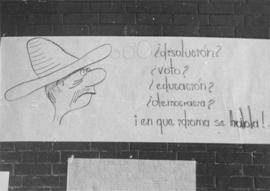 ¿disolución?
¿voto?
¿educación?
¿democracia?
¡en que idioma se habla!